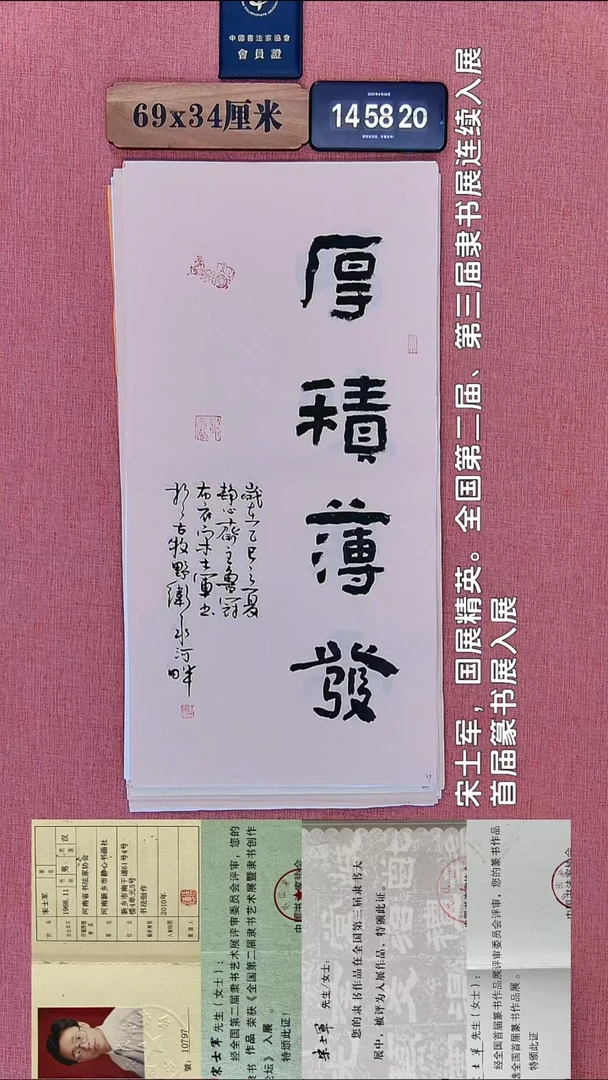 中國書法家協會
會員證
69x34厘米
14 58 20
厚積薄發
歲在乙巳之夏
靜心齋主魯冠
布衣宋士軍書
於古牧野衛水河畔
宋士军，国展精英。全国第二届、第三届隶书展连续入展
首届篆书展入展
宋士军
男
汉
1968.11
河南省书法家协会
河南新乡市静心书画社
新乡市南干道61号4号
楼4单元5号
书法创作
2010年
號：10797
宋士军 先生（女士）：
经全国第二届隶书艺术展评审委员会评审，您的
隶书 作品，荣获《全国第二届隶书艺术展暨隶书创作
论坛》入展。
特颁此证！
宋士军 先生/女士：
您的隶书作品在全国第三届隶书大
展中，被评为入展作品，特颁此证。
士军 先生（女士）：
经全国首届篆书作品展评审委员会评审，您的篆书作品
全国首届篆书作品展。
特颁此证